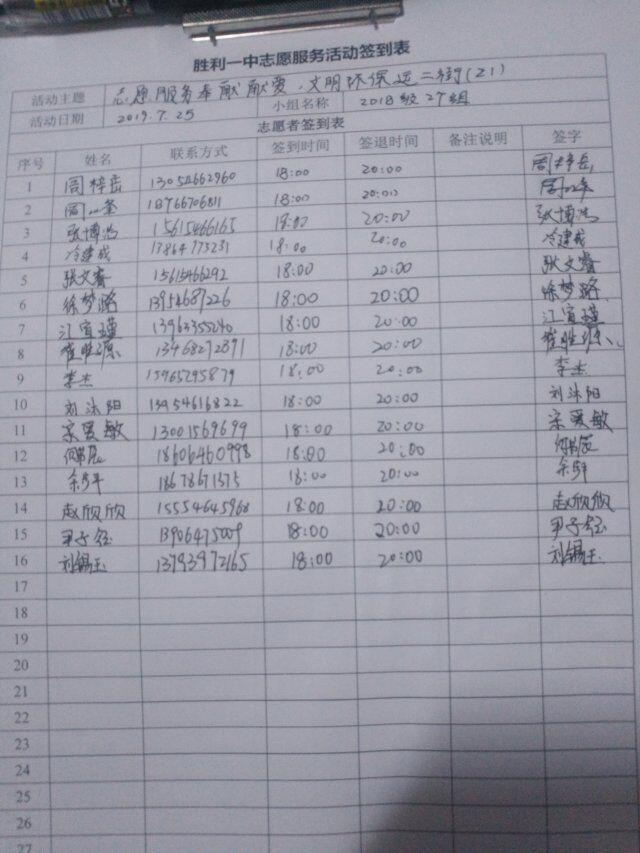 胜利一中志愿服务活动签到表
活动主题 志愿服务奉献献爱、文明环保远二街(21)
活动日期 2019.7.25 小组名称 2018级27组
志愿者签到表
序号 姓名 联系方式 签到时间 签退时间 备注说明 签字
1 周梓岳 13054662960 18:00 20:00 周梓岳
2 周 18966706811 18:00 20:00 周
3 张博浩 15615466165 18:00 20:00 张博浩
4 冷建成 13864773231 18:00 20:00 冷建成
5 张文睿 15615466292 18:00 20:00 张文睿
6 徐梦璐 13954687226 18:00 20:00 徐梦璐
7 江宜瑾 13963355040 18:00 20:00 江宜瑾
8 崔胜源 13468272891 18:00 20:00 崔胜源
9 李杰 15965295879 18:00 20:00 李杰
10 刘沐阳 13954616822 18:00 20:00 刘沐阳
11 宋爱敏 13001569699 18:00 20:00 宋爱敏
12 18606460998 18:00 20:00
13 余 18678671375 18:00 20:00 余
14 赵欣欣 15554645968 18:00 20:00 赵欣欣
15 尹子钰 13906475009 18:00 20:00 尹子钰
16 刘锡玉 13793972165 18:00 20:00 刘锡玉
17
18
19
20
21
22
23
24
25
26
27